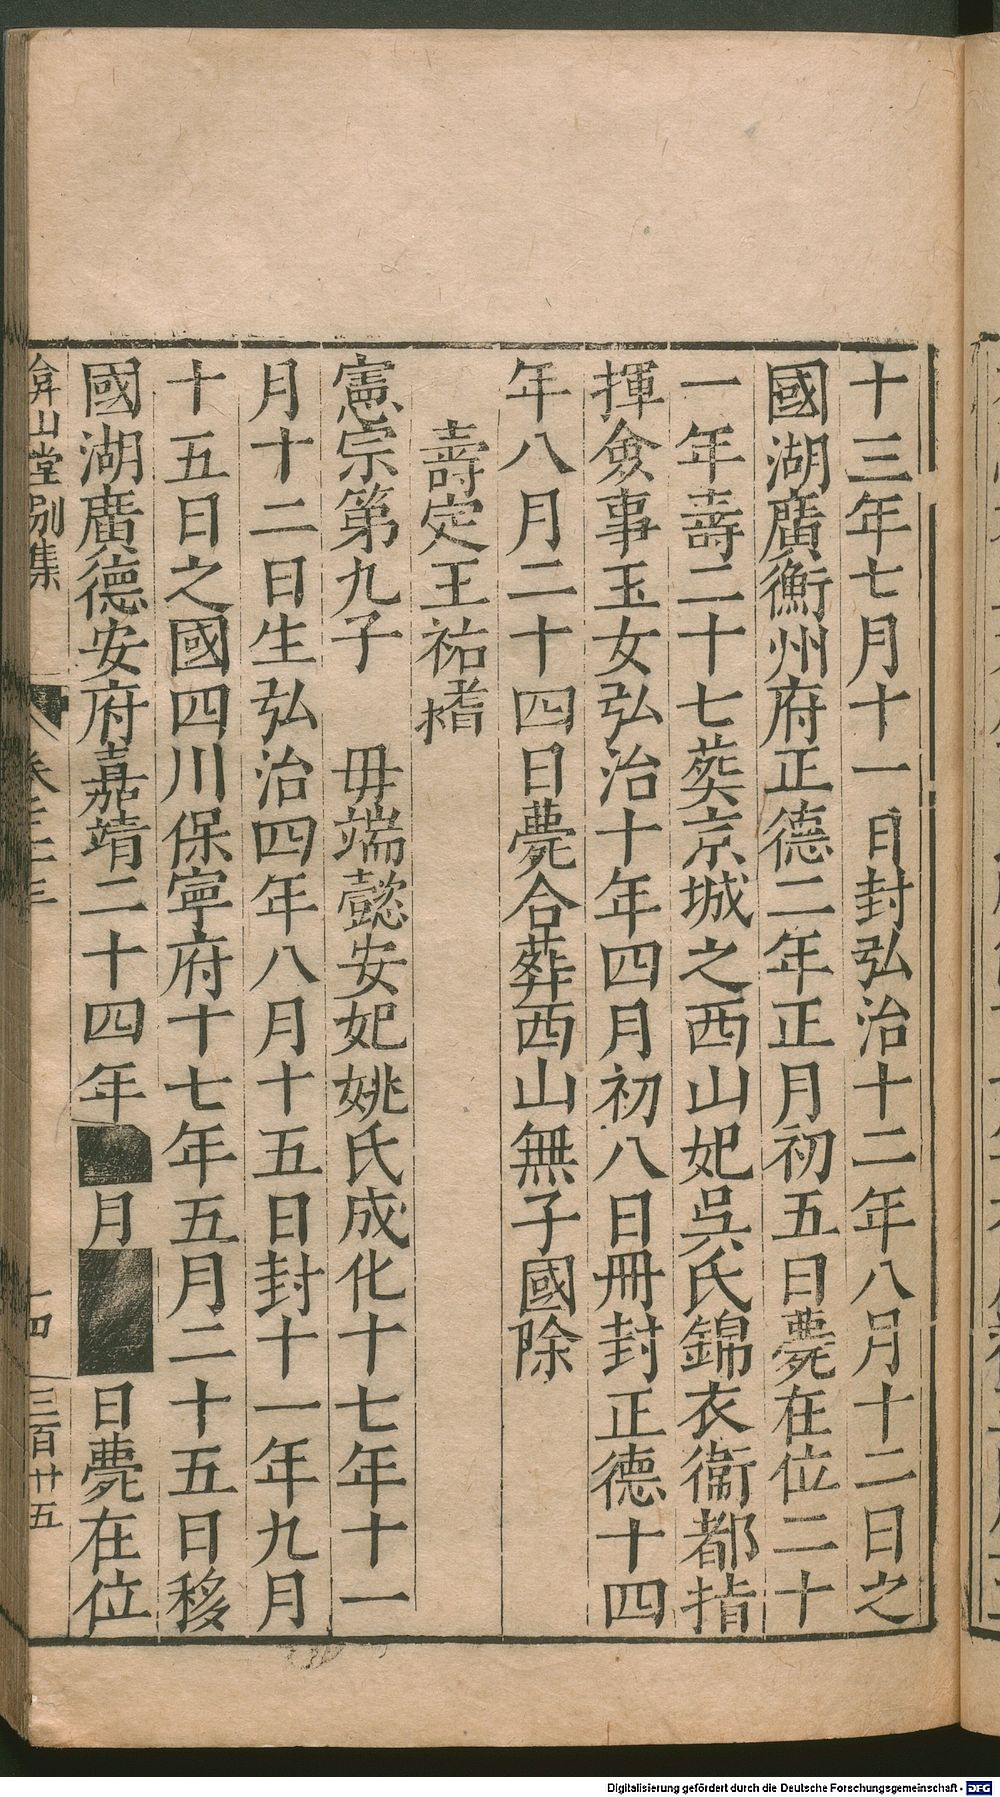 十三年七月十一日封弘治十二年八月十二日之
國湖廣衡州府正德二年正月初五日薨在位二十
一年壽二十七葬京城之西山妃吳氏錦衣衞都指
揮僉事玉女弘治十年四月初八日冊封正德十四
年八月二十四日薨合葬西山無子國除
壽定王祐榰
憲宗第九子 毋端懿安妃姚氏成化十七年十一
月十二日生弘治四年八月十五日封十一年九月
十五日之國四川保寧府十七年五月二十五日移
國湖廣德安府嘉靖二十四年 月 日薨在位
弇山堂別集 卷三十二 十四 三百卅五
Digitalisierung gefördert durch die Deutsche Forschungsgemeinschaft - DFG